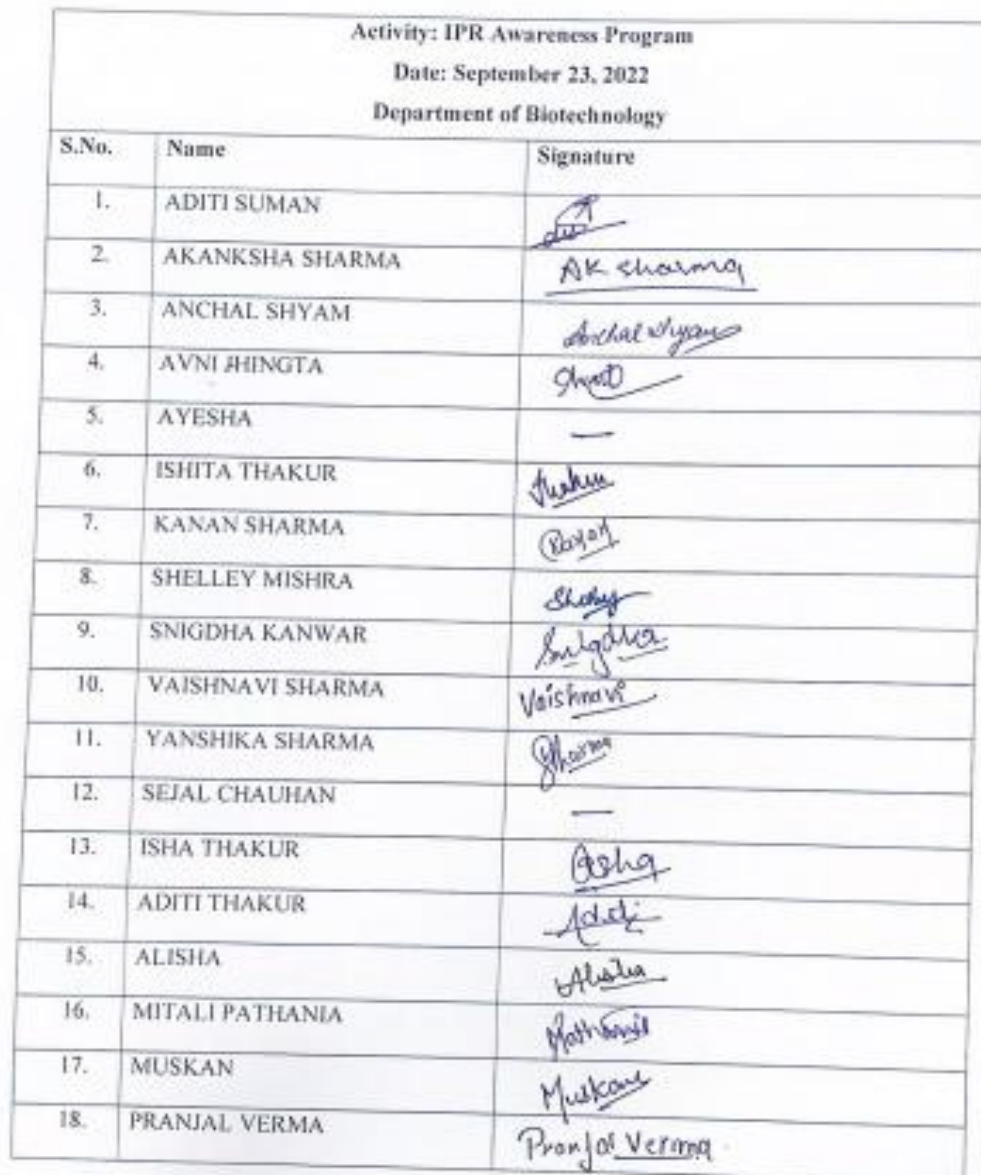 Activity: IPR Awareness Program
Date: September 23, 2022
Department of Biotechnology
S.No. Name Signature
1. ADITI SUMAN
2. AKANKSHA SHARMA AK Sharma
3. ANCHAL SHYAM Anchal Shyam
4. AVNI JHINGTA
5. AYESHA —
6. ISHITA THAKUR Thakur
7. KANAN SHARMA
8. SHELLEY MISHRA
9. SNIGDHA KANWAR Snigdha
10. VAISHNAVI SHARMA Vaishnavi
11. YANSHIKA SHARMA Sharma
12. SEJAL CHAUHAN —
13. ISHA THAKUR
14. ADITI THAKUR Aditi
15. ALISHA Alisha
16. MITALI PATHANIA
17. MUSKAN Muskan
18. PRANJAL VERMA Pranjal Verma